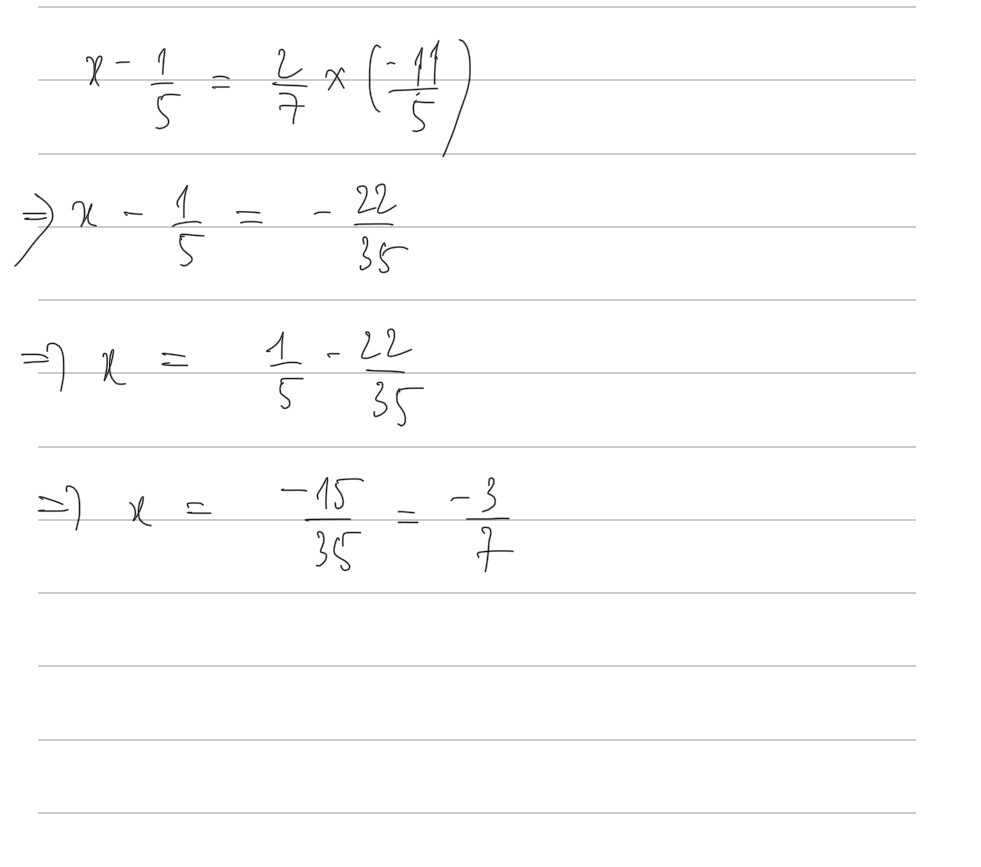 x - 1/5 = 2/7 × (-11/5)
⇒ x - 1/5 = - 22/35
⇒ x = 1/5 - 22/35
⇒ x = -15/35 = -3/7